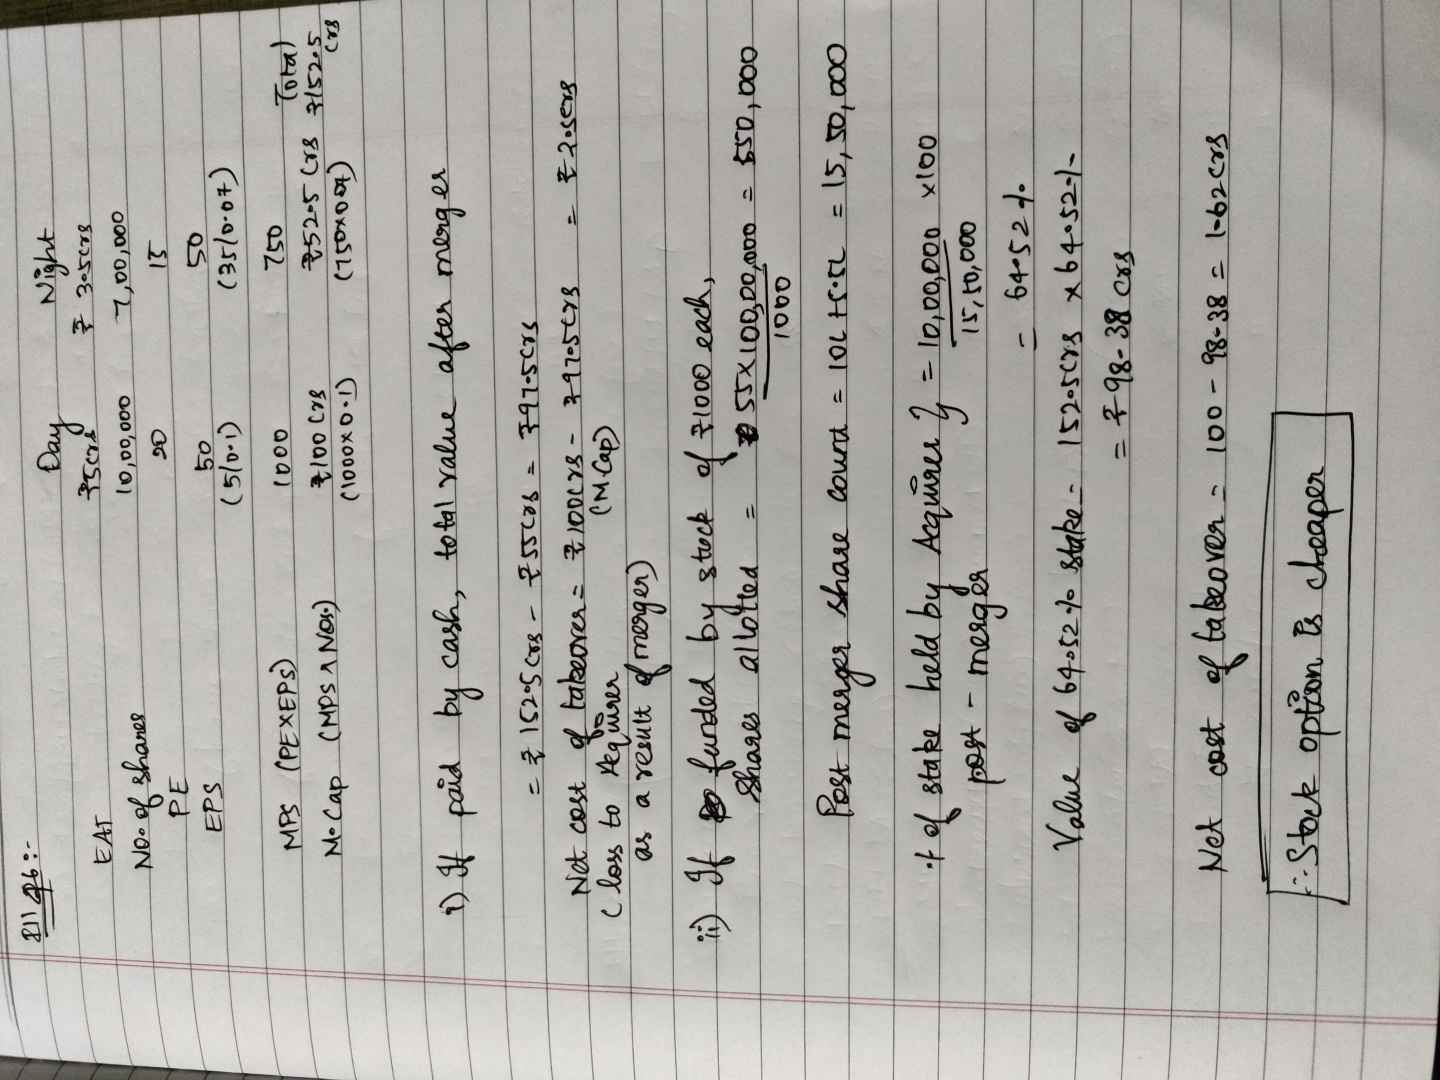 Ill q6:-
Day Night
EAT ₹5crs ₹ 3.5crs
No. of shares 10,00,000 7,00,000
PE 20 15
EPS 50 50
(5/0.1) (35/0.07)
MPS (PEXEPS) 1000 750 Total
M.Cap (MPS x Nos.) ₹100 Crs ₹52.5 Crs ₹152.5 Crs
(1000x0.1) (750x0.07)
i) If paid by cash, total value after merger
= ₹152.5 Crs - ₹55Crs = ₹97.5Crs
Net cost of takeover = ₹100Crs - ₹97.5Crs = ₹2.5Crs
(loss to Acquirer (M.Cap)
as a result of merger)
ii) If funded by stock of ₹1000 each,
Shares allotted = 55x100,00,000 = 550,000
1000
Post merger share count = 10L+5.5L = 15,50,000
% of stake held by Acquirer } = 10,00,000 x100
post - merger 15,50,000
= 64.52%
Value of 64.52% stake = 152.5Crs x 64.52%
= ₹98.38 Crs
Net cost of takeover = 100 - 98.38 = 1.62Crs
∴ Stock option is cheaper